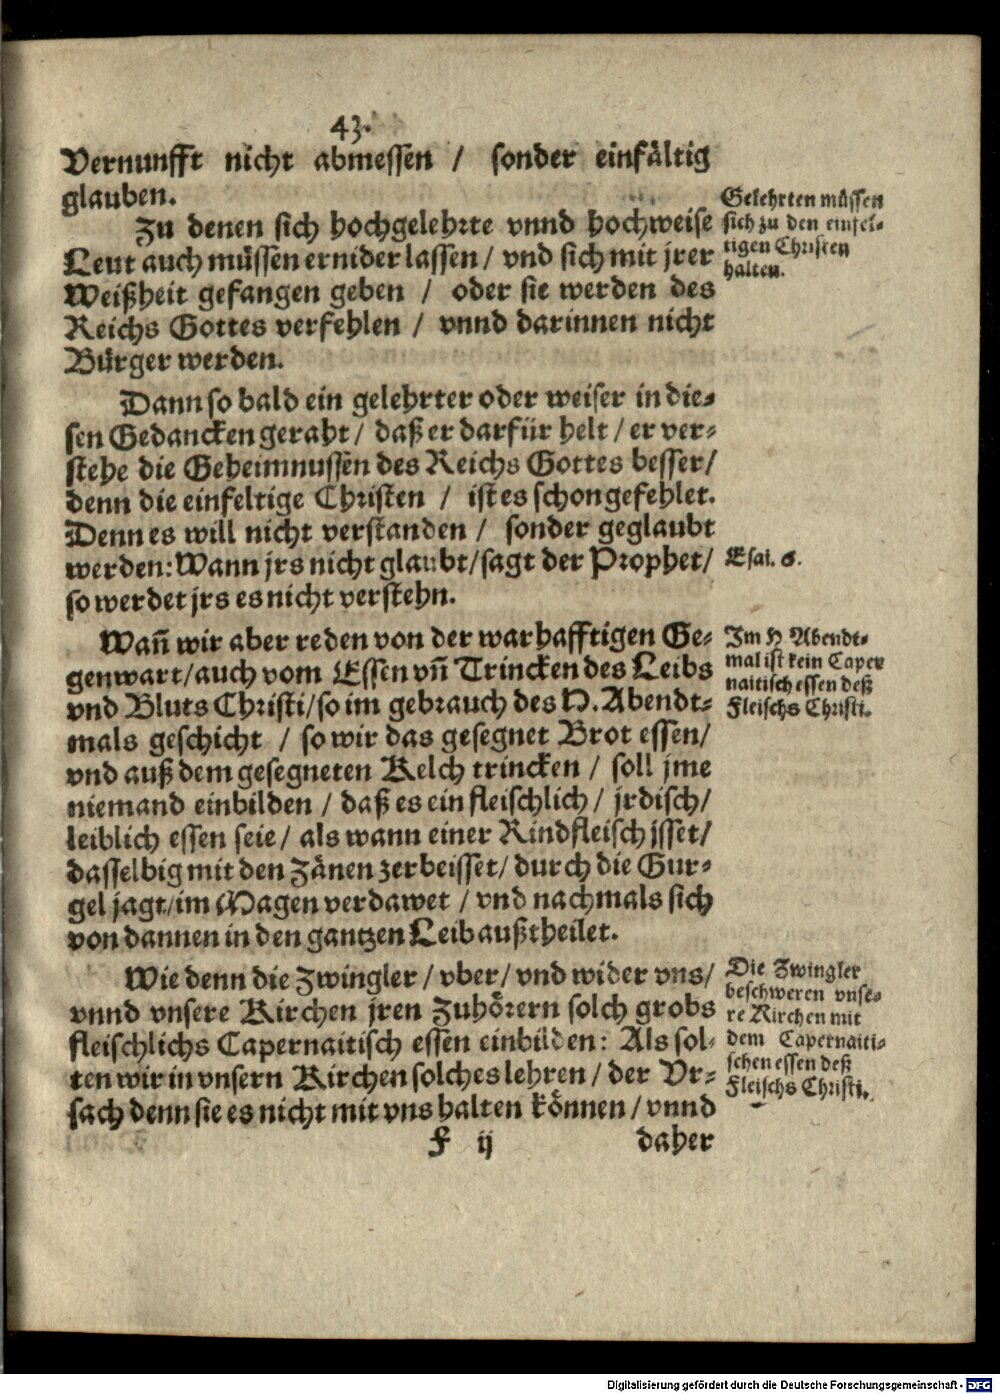 43.
Vernunfft nicht abmessen / sonder einfältig
glauben.
Zu denen sich hochgelehrte vnnd hochweise
Leut auch müssen ernider lassen / vnd sich mit jrer
Weißheit gefangen geben / oder sie werden des
Reichs Gottes verfehlen / vnnd darinnen nicht
Bürger werden.
Gelehrten müssen
sich zu den einfel-
tigen Christen
halten.
Dann so bald ein gelehrter oder weiser in die-
sen Gedancken geraht / daß er darfür helt / er ver-
stehe die Geheimnussen des Reichs Gottes besser/
denn die einfeltige Christen / ist es schon gefehlet.
Denn es will nicht verstanden / sonder geglaubt
werden: Wann jrs nicht glaubt/sagt der Prophet/
so werdet jrs es nicht verstehn.
Esai. 6.
Wañ wir aber reden von der warhafftigen Ge-
genwart/auch vom Essen vñ Trincken des Leibs
vnd Bluts Christi/so im gebrauch des H. Abendt-
mals geschicht / so wir das gesegnet Brot essen/
vnd auß dem gesegneten Kelch trincken / soll jme
niemand einbilden / daß es ein fleischlich/ jrdisch/
leiblich essen seie/ als wann einer Rindfleisch jsset/
dasselbig mit den Zänen zerbeisset/ durch die Gur-
gel jagt/im Magen verdawet / vnd nachmals sich
von dannen in den gantzen Leib außtheilet.
Im H Abendt-
mal ist kein Caper
naitisch essen deß
Fleischs Christi.
Wie denn die Zwingler / vber/ vnd wider vns/
vnnd vnsere Kirchen jren Zuhörern solch grobs
fleischlichs Capernaitisch essen einbilden: Als sol-
ten wir in vnsern Kirchen solches lehren / der Vr-
sach denn sie es nicht mit vns halten können / vnnd
Die Zwingler
beschweren vnse-
re Kirchen mit
dem Capernaiti-
schen essen deß
Fleischs Christi.
F ij daher
Digitalisierung gefördert durch die Deutsche Forschungsgemeinschaft - DFG